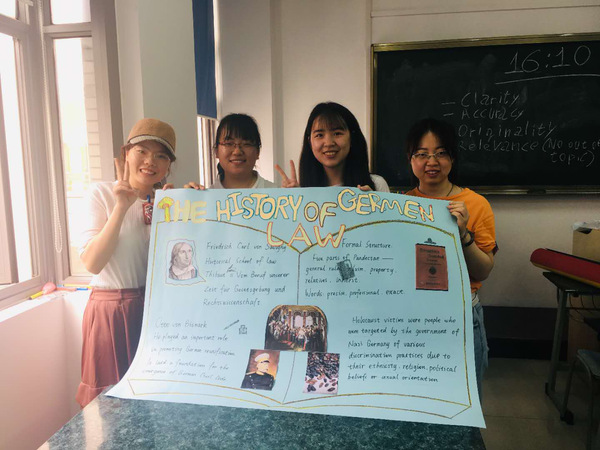 16:10
- Clarity
- Accuracy
Originality
Relevance (NO out of
topic)
THE HISTORY OF GERMEN
LAW
Friedrich Carl von Savigny
Historical School of Law
Beruf unserer
Zeit für Gesetzgebung und
Rechtswissenschaft.
Otto von Bismarck
He played an important role
in promoting German reunification
& laid a foundation for the
emergence of German Civil Code
Formal Structure.
Five parts of Pandecten —
general rules, property,
relative, inherit
Words: precise, professional, exact
Holocaust victims were people who
were targeted by the government of
Nazi Germany of various
discrimination practices due to
their ethnicity, religion, political
beliefs or sexual orientation